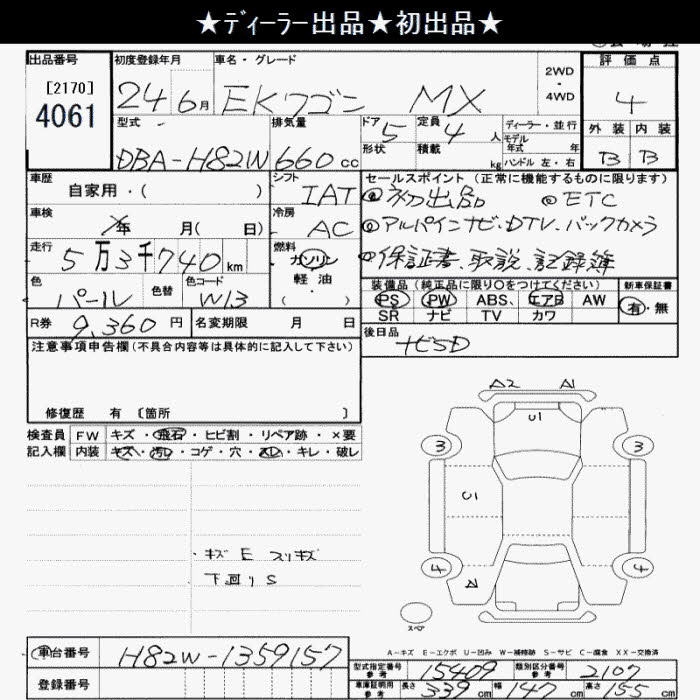 ★ディーラー出品★初出品★
出品番号
[2170]
4061
初度登録年月
24年6月
車名・グレード
EKワゴン MX
2WD
・
4WD
評価点
4
外装 内装
B B
型式
DBA-H82W
排気量
660cc
ドア 5
形状
定員 4人
積載 kg
ディーラー・並行
モデル
年式 年
ハンドル 左・右
車歴
自家用・( )
シフト
IAT
セールスポイント (正常に機能するものに限ります)
◎初出品 ◎ETC
◎アルパインナビ、DTV、バックカメラ
◎保証書、取説、記録簿
車検
年 月( 日)
冷房
AC
走行
5万3千740km
燃料
ガソリン
軽油
( )
色
パール
色替
色コード
W13
装備品(純正品に限り○をつけてください)
PS PW ABS、エアB AW
SR ナビ TV カワ
新車保証書
有・無
R券 9,360円
名変期限 月 日
後日品
ナビSD
注意事項申告欄(不具合内容等は具体的に記入して下さい)
修復歴 有 〔箇所 〕
検査員
記入欄
FW キズ・飛石・ヒビ割・リペア跡・×要
内装 キズ・汚レ・コゲ・穴・スレ・キレ・破レ
・キズ E スリキズ
下回り S
A2 A1
U1
3 3
U1
4 4
A
スペア
A－キズ E－エクボ U－凹み W－補修跡 S－サビ C－腐食 XX－交換済
車台番号
H82W-1359157
登録番号
型式指定番号
参考
15409
類別区分番号
参考
2107
車庫証明用
参考
長さ 339cm 幅 147cm 高さ 155cm